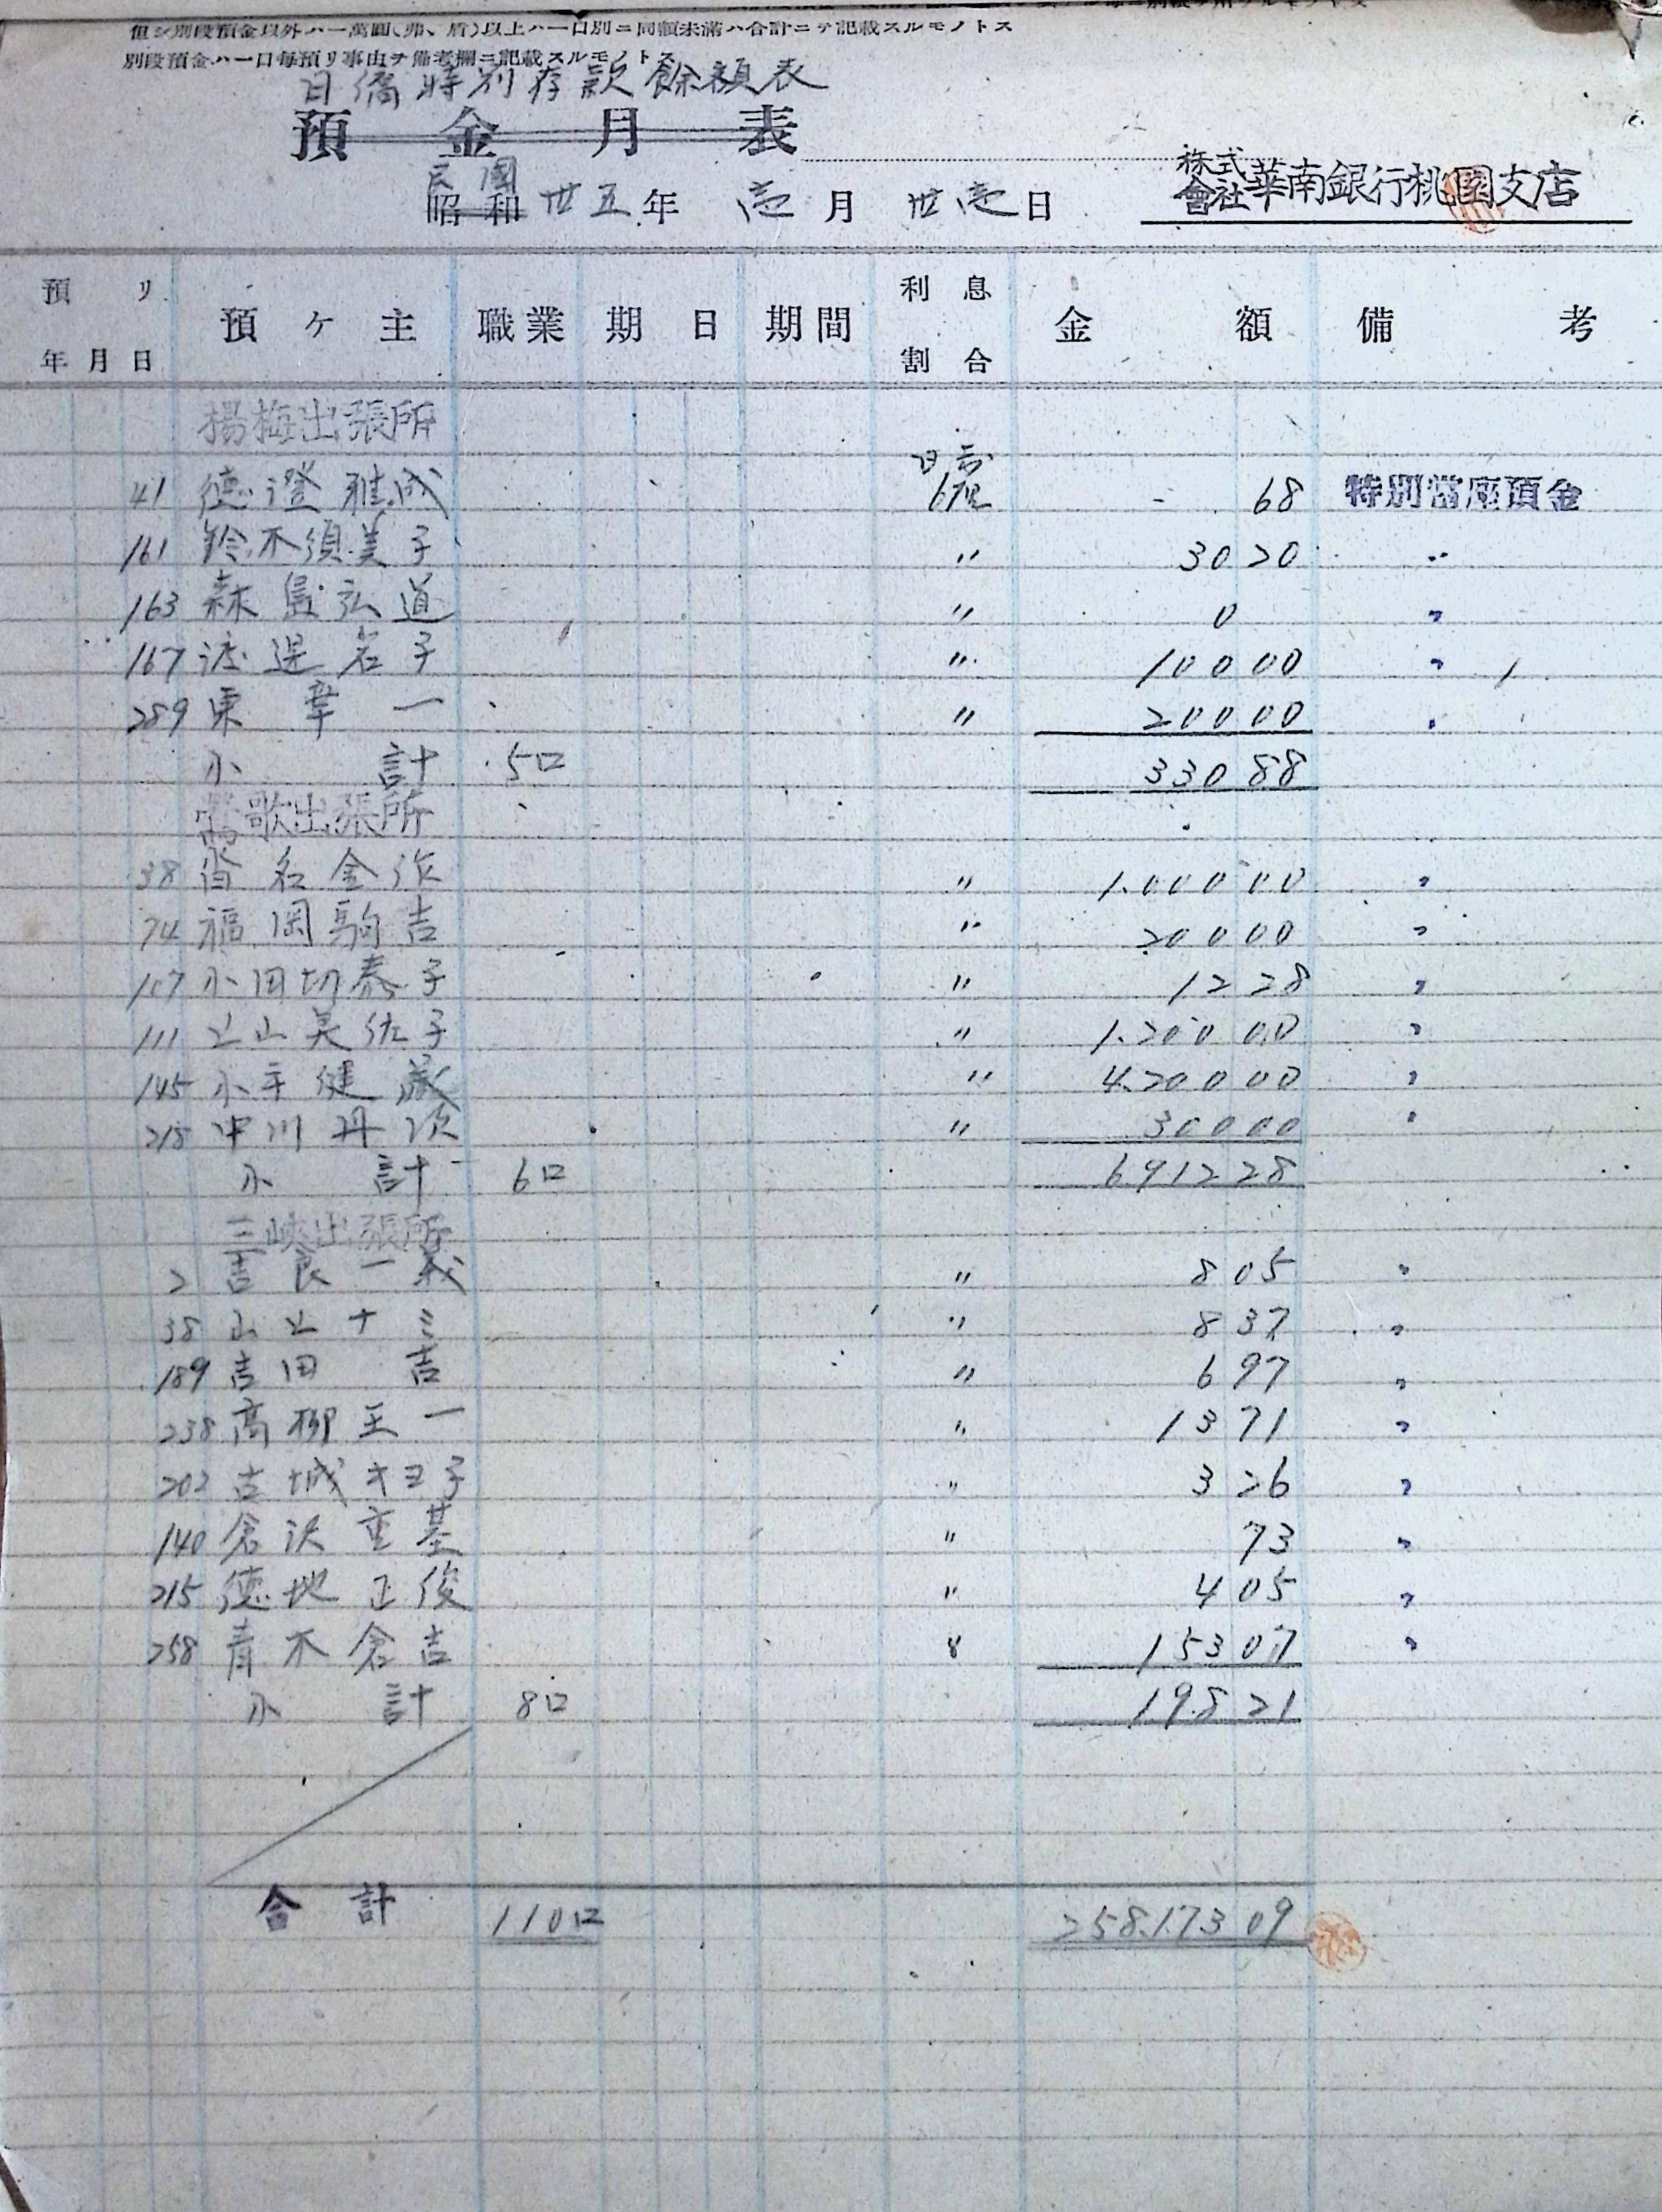 但シ別段預金以外ハ一萬圓(弗、盾)以上ハ一口別ニ同額未滿ハ合計ニテ記載スルモノトス
別段預金ハ一口每預リ事由ヲ備考欄ニ記載スルモノトス
日僑特別存款餘額表
預金月表
株式會社華南銀行桃園支店
民國
昭和 卅五年 壱月 卅壱日
預リ年月日 預ケ主 職業 期日 期間 利息割合 金額 備考
楊梅出張所
41 德澄雅成 日歩 6厘 68 特別當座預金
161 鈴木須美子 〃 3020 〃
163 森島弘道 〃 0 〃
167 渡邊若子 〃 10000 〃
289 東幸一 〃 20000 〃
小計 5口 33088
鶯歌出張所
38 沓名金作 〃 1.00000 〃
74 福岡駒吉 〃 20000 〃
107 小田切泰子 〃 1228 〃
111 上山美佐子 〃 1.20000 〃
145 小平健藏 〃 4.20000 〃
218 中川丹次 〃 30000 〃
小計 6口 691228
三峽出張所
2 吉良一義 〃 805 〃
38 山上ナミ 〃 837 〃
189 吉田吉 〃 697 〃
238 高柳王一 〃 1371 〃
202 古城キヨ子 〃 326 〃
140 倉沢重基 〃 73 〃
215 德地正俊 〃 405 〃
258 青木倉吉 〃 15307 〃
小計 8口 19821
合計 110口 258.173 09